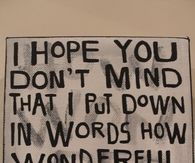 I HOPE YOU
DON'T MIND
THAT I PUT DOWN
IN WORDS HOW
WONDERFUL